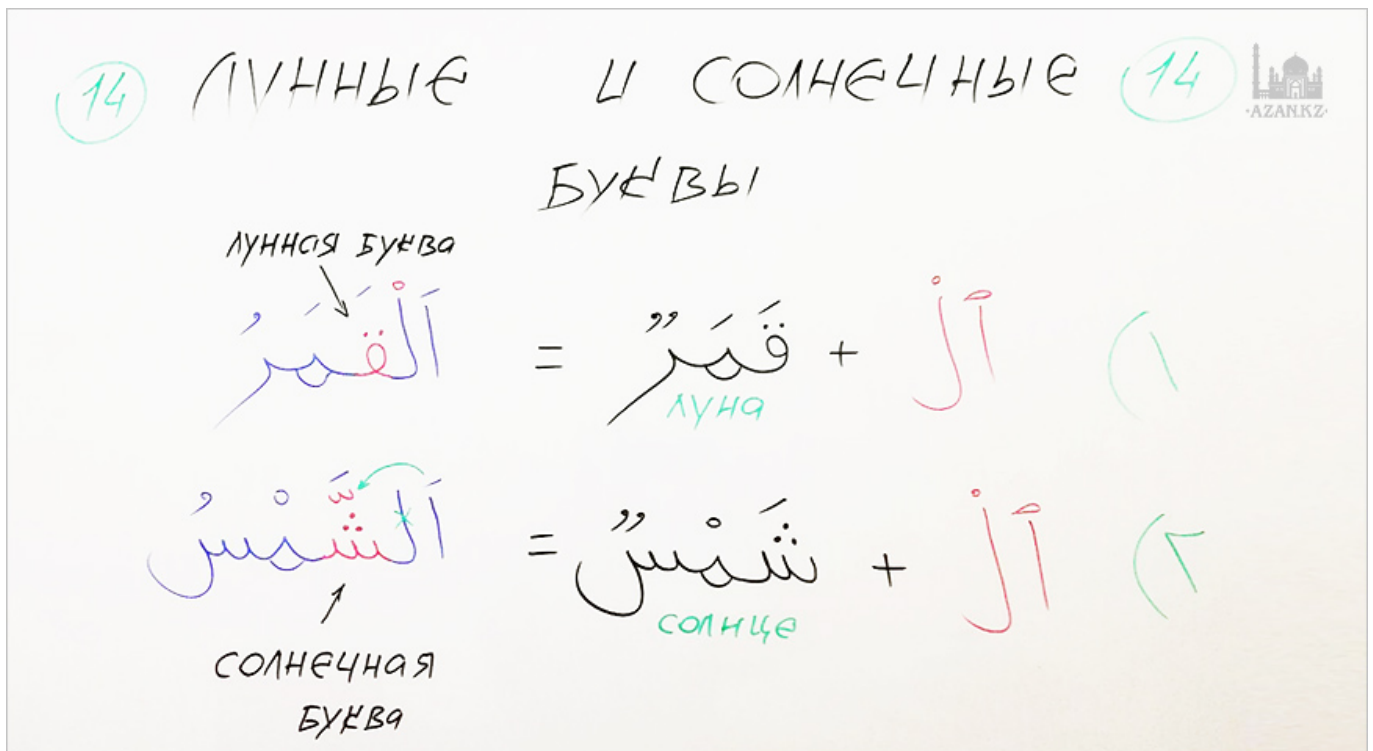 14 ЛУННЫЕ И СОЛНЕЧНЫЕ 14
·AZAN.KZ·
БУКВЫ
ЛУННАЯ БУКВА
١) اَلْ + قَمَرٌ = اَلْقَمَرُ
ЛУНА
٢) اَلْ + شَمْسٌ = اَلشَّمْسُ
СОЛНЦЕ
СОЛНЕЧНАЯ
БУКВА